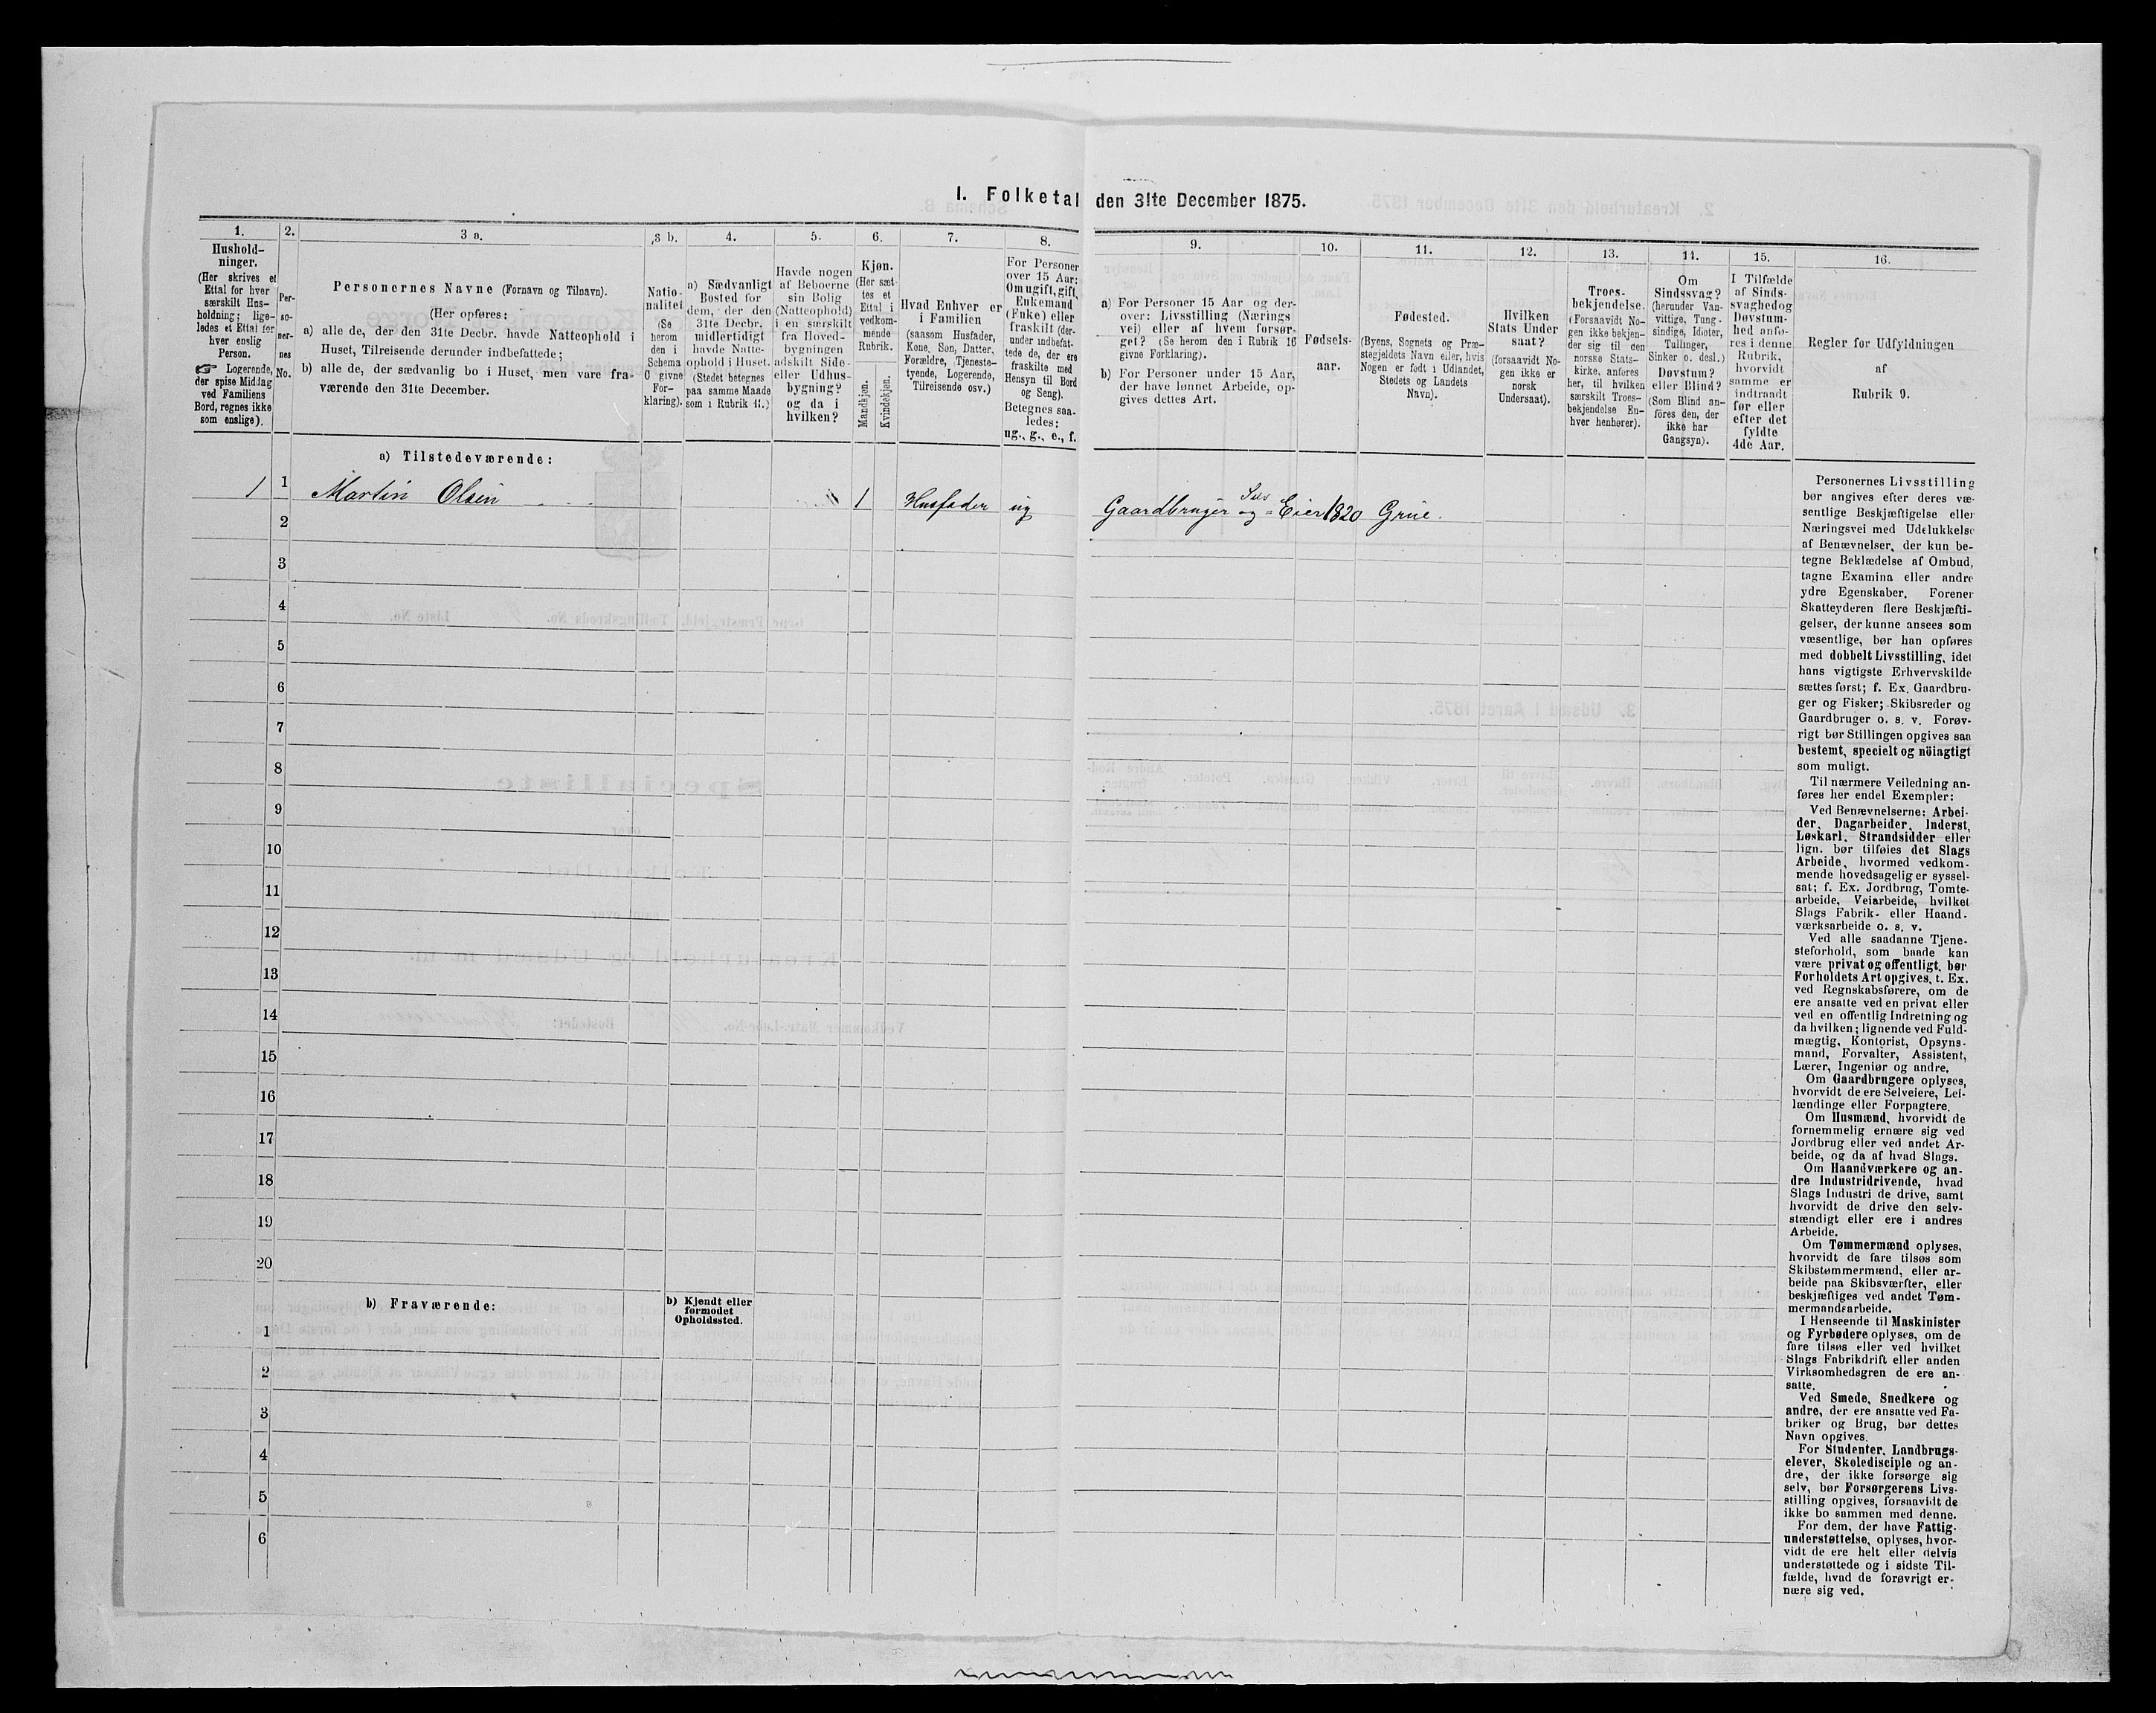 I. Folketal den 31te December 1875.
1.
Hushold-
ninger.
(Her skrives et
Ettal for hver
særskilt Hus-
holdning; lige-
ledes et Ettal for
hver enslig
Person.
☞ Logerende,
der spise Middag
ved Familiens
Bord, regnes ikke
som enslige).
2.
Per-
so-
ner-
nes
No.
3 a.
Personernes Navne (Fornavn og Tilnavn).
(Her opføres:
a) alle de, der den 31te Decbr. havde Natteophold i
Huset, Tilreisende derunder indbefattede;
b) alle de, der sædvanlig bo i Huset, men vare fra-
værende den 31te December.
3 b.
Natio-
nalitet
(Se
herom
den i
Schema
C givne
For-
klaring).
4.
a) Sædvanligt
Bosted for
dem, der den
31te Decbr.
midlertidigt
havde Natte-
ophold i Huset.
(Stedet betegnes
paa samme Maade
som i Rubrik 11.)
5.
Havde nogen
af Beboerne
sin Bolig
(Natteophold)
i en særskilt
fra Hoved-
bygningen
adskilt Side-
eller Udhus-
bygning?
og da i
hvilken?
6.
Kjøn.
(Her sæt-
tes et
Ettal i
vedkom-
mende
Rubrik.
Mandkjøn.
Kvindekjøn.
7.
Hvad Enhver er
i Familien
(saasom Husfader,
Kone, Søn, Datter,
Forældre, Tjeneste-
tyende, Logerende,
Tilreisende osv.)
8.
For Personer
over 15 Aar:
Om ugift, gift,
Enkemand
(Enke) eller
fraskilt (der-
under indbefat-
tede de, der ere
fraskilte med
Hensyn til Bord
og Seng).
Betegnes saa-
ledes:
ug., g., e., f.
9.
a) For Personer 15 Aar og der-
over: Livsstilling (Nærings
vei) eller af hvem forsør-
get? (Se herom den i Rubrik 16
givne Forklaring).
b) For Personer under 15 Aar,
der have lønnet Arbeide, op-
gives dettes Art.
10.
Fødsels-
aar.
11.
Fødested.
(Byens, Sognets og Præ-
stegjeldets Navn eller, hvis
Nogen er født i Udlandet,
Stedets og Landets
Navn).
12.
Hvilken
Stats Under
saat?
(forsaavidt No-
gen ikke er
norsk
Undersaat).
13.
Troes-
bekjendelse.
(Forsaavidt No-
gen ikke bekjen-
der sig til den
norske Stats-
kirke, anføres
her, til hvilken
særskilt Troes-
bekjendelse En-
hver henhører).
14.
Om
Sindssvag?
(herunder Van-
vittige, Tung-
sindige, Idioter,
Tullinger,
Sinker o. desl.)
Døvstum?
eller Blind?
(Som Blind an-
føres den, der
ikke har
Gangsyn).
15.
I Tilfælde
af Sinds-
svaghed og
Døvstum-
hed anfø-
res i denne
Rubrik,
hvorvidt
samme er
indtraadt
før eller
efter det
fyldte
4de Aar.
16.
Regler for Udfyldningen
af
Rubrik 9.
a) Tilstedeværende:
1 1 Martin Olsen 1 Husfader ug Gaardbruger og Eier 1820 Grue.
2
3
4
5
6
7
8
9
10
11
12
13
14
15
16
17
18
19
20
b) Fraværende:
b) Kjendt eller
formodet
Opholdssted.
1
2
3
4
5
6
Personernes Livsstilling
bør angives efter deres væ-
sentlige Beskjæftigelse eller
Næringsvei med Udelukkelse
af Benævnelser, der kun be-
tegne Beklædelse af Ombud,
tagne Examina eller andre
ydre Egenskaber. Forener
Skatteyderen flere Beskjæfti-
gelser, der kunne ansees som
væsentlige, bør han opføres
med dobbelt Livsstilling, idet
hans vigtigste Erhvervskilde
sættes først; f. Ex. Gaardbru-
ger og Fisker; Skibsreder og
Gaardbruger o. s. v. Forøv-
rigt bør Stillingen opgives saa
bestemt, specielt og nöiagtigt
som muligt.
Til nærmere Veiledning an-
føres her endel Exempler:
Ved Benævnelserne: Arbei-
der, Dagarbeider, Inderst,
Løskarl, Strandsidder eller
lign. bør tilføies det Slags
Arbeide, hvormed vedkom-
mende hovedsagelig er syssel-
sat; f. Ex. Jordbrug, Tomte-
arbeide, Veiarbeide, hvilket
Slags Fabrik- eller Haand-
værksarbeide o. s. v.
Ved alle saadanne Tjene-
steforhold, som baade kan
være privat og offentligt, bør
Forholdets Art opgives, t. Ex.
ved Regnskabsførere, om de
ere ansatte ved en privat eller
ved en offentlig Indretning og
da hvilken; lignende ved Fuld-
mægtig, Kontorist, Opsyns-
mand, Forvalter, Assistent,
Lærer, Ingeniør og andre.
Om Gaardbrugere oplyses,
hvorvidt de ere Selveiere, Lei-
lændinge eller Forpagtere.
Om Husmænd, hvorvidt de
fornemmelig ernære sig ved
Jordbrug eller ved andet Ar-
beide, og da af hvad Slags.
Om Haandværkere og an-
dre Industridrivende, hvad
Slags Industri de drive, samt
hvorvidt de drive den selv-
stændigt eller ere i andres
Arbeide.
Om Tømmermænd oplyses,
hvorvidt de fare tilsøs som
Skibstømmermænd, eller ar-
beide paa Skibsværfter, eller
beskjæftiges ved andet Tøm-
mermandsarbeide.
I Henseende til Maskinister
og Fyrbødere oplyses, om de
fare tilsøs eller ved hvilket
Slags Fabrikdrift eller anden
Virksomhedsgren de ere an-
satte.
Ved Smede, Snedkere og
andre, der ere ansatte ved Fa-
briker og Brug, bør dettes
Navn opgives.
For Studenter, Landbrugs-
elever, Skoledisciple og an-
dre, der ikke forsørge sig
selv, bør Forsørgerens Livs-
stilling opgives, forsaavidt de
ikke bo sammen med denne.
For dem, der have Fattig-
understøttelse, oplyses, hvor-
vidt de ere helt eller delvis
understøttede og i sidste Til-
fælde, hvad de forøvrigt er-
nære sig ved.